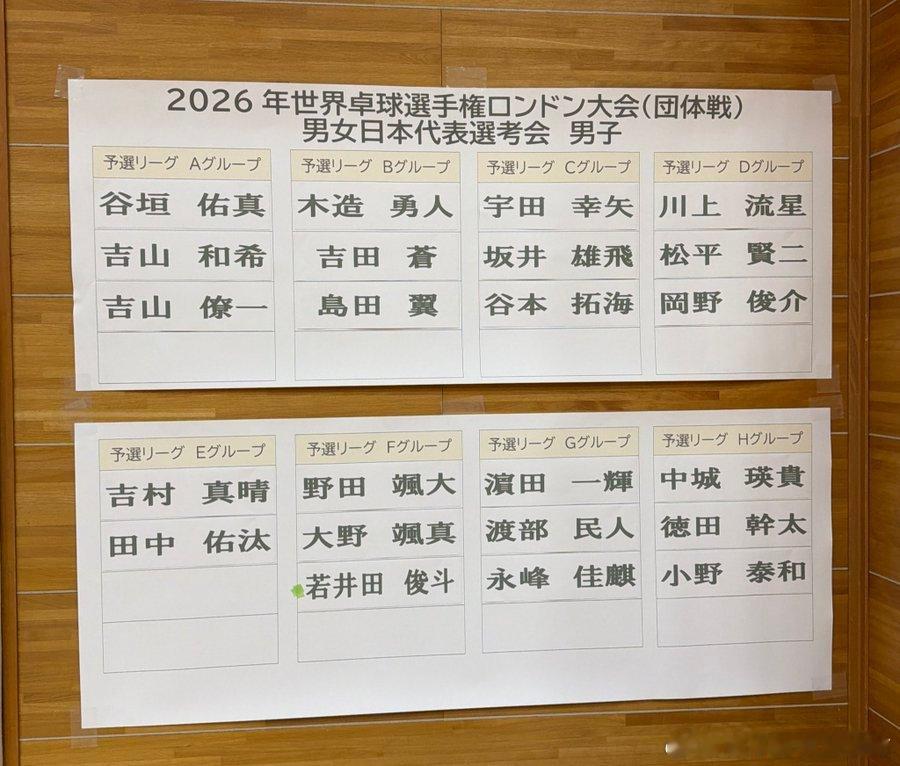 2026年世界卓球選手権ロンドン大会(団体戦)
男女日本代表選考会 男子
予選リーグ Aグループ
谷垣 佑真
吉山 和希
吉山 僚一
予選リーグ Bグループ
木造 勇人
吉田 蒼
島田 翼
予選リーグ Cグループ
宇田 幸矢
坂井 雄飛
谷本 拓海
予選リーグ Dグループ
川上 流星
松平 賢二
岡野 俊介
予選リーグ Eグループ
吉村 真晴
田中 佑汰
予選リーグ Fグループ
野田 颯太
大野 颯真
若井田 俊斗
予選リーグ Gグループ
濵田 一輝
渡部 民人
永峰 佳麒
予選リーグ Hグループ
中城 瑛貴
徳田 幹太
小野 泰和